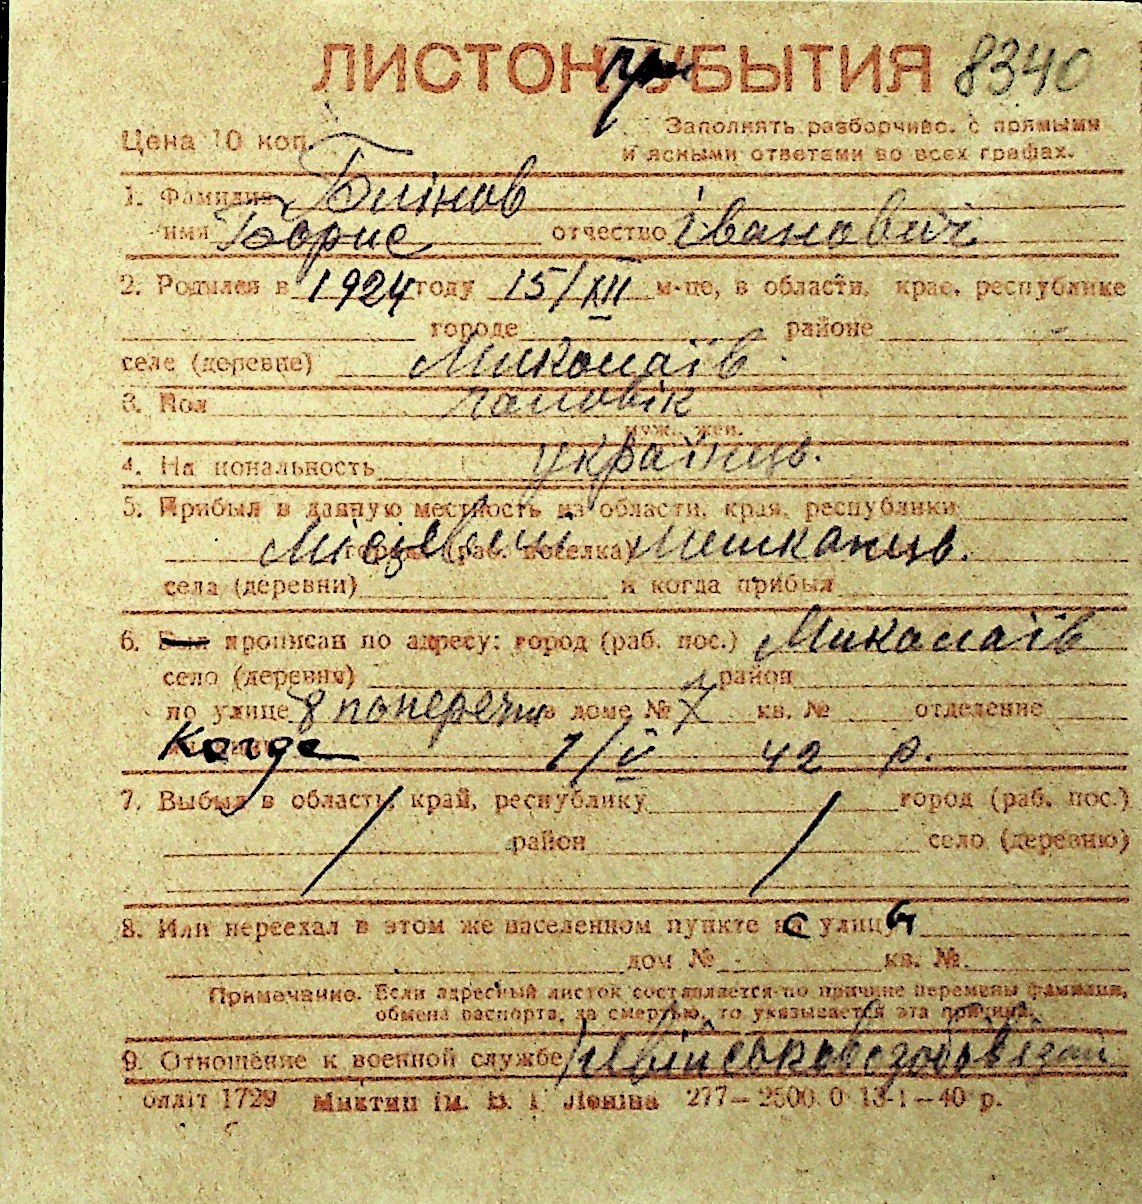 ЛИСТОК при УБЫТИЯ 8340
Заполнять разборчиво, с прямыми
Цена 10 коп.
и ясными ответами во всех графах.
1. Фамилия Блінов
имя Борис отчество Іванович
2. Родился в 1924 году 15/XII м-це, в области, крае, республике
городе районе
селе (деревне) Миколаїв
3. Пол чаловік
муж., жен.
4. Национальность українць.
5. Прибыл в данную местность из области, края, республики
города (раб. поселка) Місцевий мешканць.
села (деревни) и когда прибыл
6. Был прописан по адресу: город (раб. пос.) Миколаїв
село (деревня) район
по улице 8 поперечн в доме № 7 кв. № отделение
Когда 1/V 42 р.
7. Выбыл в область, край, республику город (раб. пос.)
район село (деревню)
8. Или переехал в этом же населенном пункте с улицы
дом № кв. №
Примечание. Если адресный листок составляется по причине перемены фамилии,
обмена паспорта, за смертью, то указывается эта причина.
9. Отношение к военной службе Невійськовозобовязан
Облліт 1729 Миктип ім. В. І. Леніна 277—2500.0 13-1—40 р.